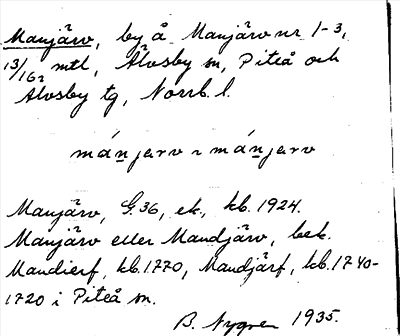 Manjärv, by å Manjärv nr 1-3,
13/162 mtl, Älvsby sn, Piteå och
Älvsby tg, Norrb. l.
mánjarv ~ mánjarv
Manjärv, G. 36, ek., kb. 1924.
Manjärv eller Mandjärv, bek.
Mandierf, kb. 1770, Mandjärf, kb. 1740-
1720 i Piteå sn.
B. Nygren 1935.